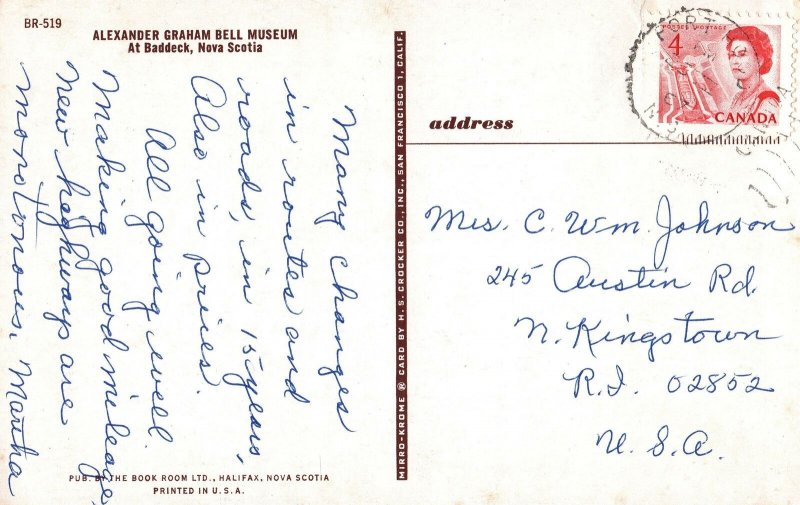 BR-519
ALEXANDER GRAHAM BELL MUSEUM
At Baddeck, Nova Scotia
Many changes
in routes and
roads, in 15 years,
Also in pries.
All going well
Making good mileage,
New heghways are
monotonous. Martha
PUB. BY THE BOOK ROOM LTD., HALIFAX, NOVA SCOTIA
PRINTED IN U.S.A.
MIRRO-KROME ® CARD BY H. S. CROCKER CO., INC., SAN FRANCISCO 1, CALIF.
POSTES POSTAGE
4
CANADA
PORT
address
Mrs. C. Wm. Johnson
245 Austin Rd.
N. Kingstown
R.I. 02852
U.S.A.